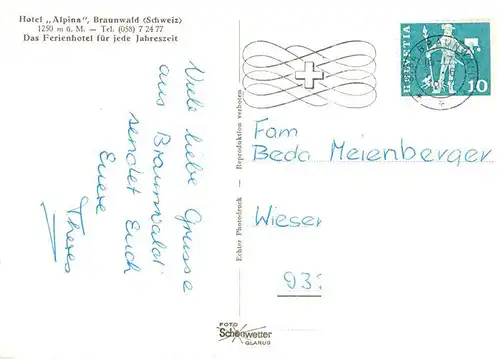 Hotel „Alpina", Braunwald (Schweiz)
1250 m ü. M. — Tel. (058) 7 24 77
Das Ferienhotel für jede Jahreszeit
Viele liebe Grüsse
aus Braunwald
sendet Euch
Euere
Theres
Echter Photodruck — Reproduktion verboten
FOTO
Schönwetter
GLARUS
HELVETIA
10
BRAUNWALD
Fam
Beda Meienberger
Wieser